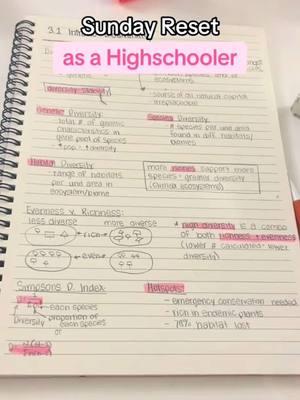 Sunday Reset
as a Highschooler
3.1
ecosystems
diversity stability
source of all natural capital
irreplaceable
Genetic Diversity:
total # of genetic
characteristics in
gene pool of species
↑pop = ↑diversity
Species Diversity
# species per unit area
found in diff habitats/
biomes
Habitat Diversity
- range of habitats
per unit area in
ecosystem/biome
more niches support more
species = greater diversity
Evenness v. Richness:
less diverse
more diverse
rich
even
* high diversity is a combo
of both richness + evenness
(lower # calculated = lower
diversity)
Simpsons D. Index:
each species
Diversity
proportion of
each species
or
Hotspots:
- emergency conservation needed
- rich in endemic plants
- 70% habitat lost